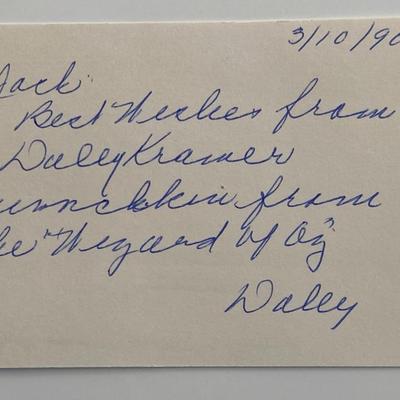 3/10/90
Jack:
Best Wishes from
Dolly Kramer
munchkin from
the "Wizard of Oz
Dolly